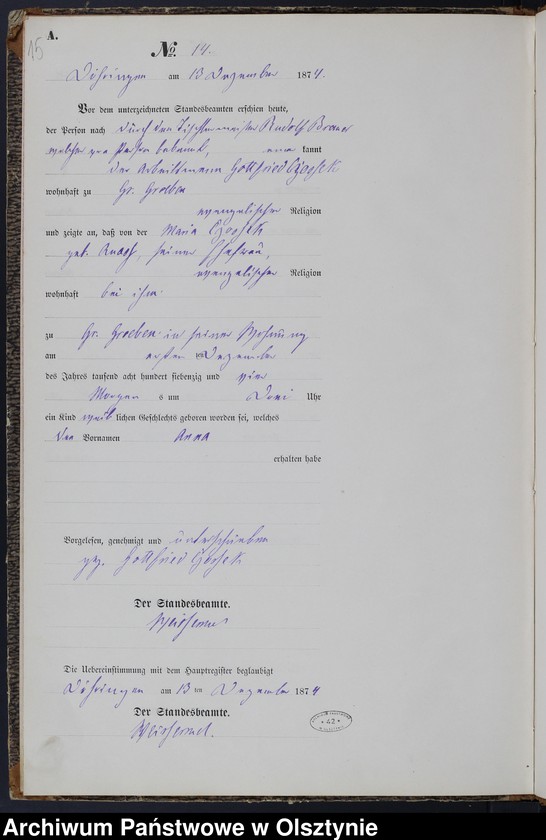 15
A.
No. 14.
Döhringen am 13 Dezember 1874.
Vor dem unterzeichneten Standesbeamten erschien heute,
der Person nach durch den Tischlermeister Rudolf
welcher pro Person bekannt, kannt
der Arbeitsmann Gottfried
wohnhaft zu Gr. Groeben
evangelischer Religion
und zeigte an, daß von der Maria
geb. seiner Ehefrau,
evangelischer Religion
wohnhaft bei ihm
zu Gr. Groeben in seiner Wohnung
am ersten ten Dezember
des Jahres tausend acht hundert siebenzig und vier
Morgen s um Drei Uhr
ein Kind weib lichen Geschlechts geboren worden sei, welches
den Vornamen Anna
erhalten habe
Vorgelesen, genehmigt und unterschrieben
gez. Gottfried
Der Standesbeamte.
Weissermel
Die Uebereinstimmung mit dem Hauptregister beglaubigt
Döhringen am 13 ten Dezember 1874
Der Standesbeamte.
Weissermel.
* 42 *
Archiwum Państwowe w Olsztynie